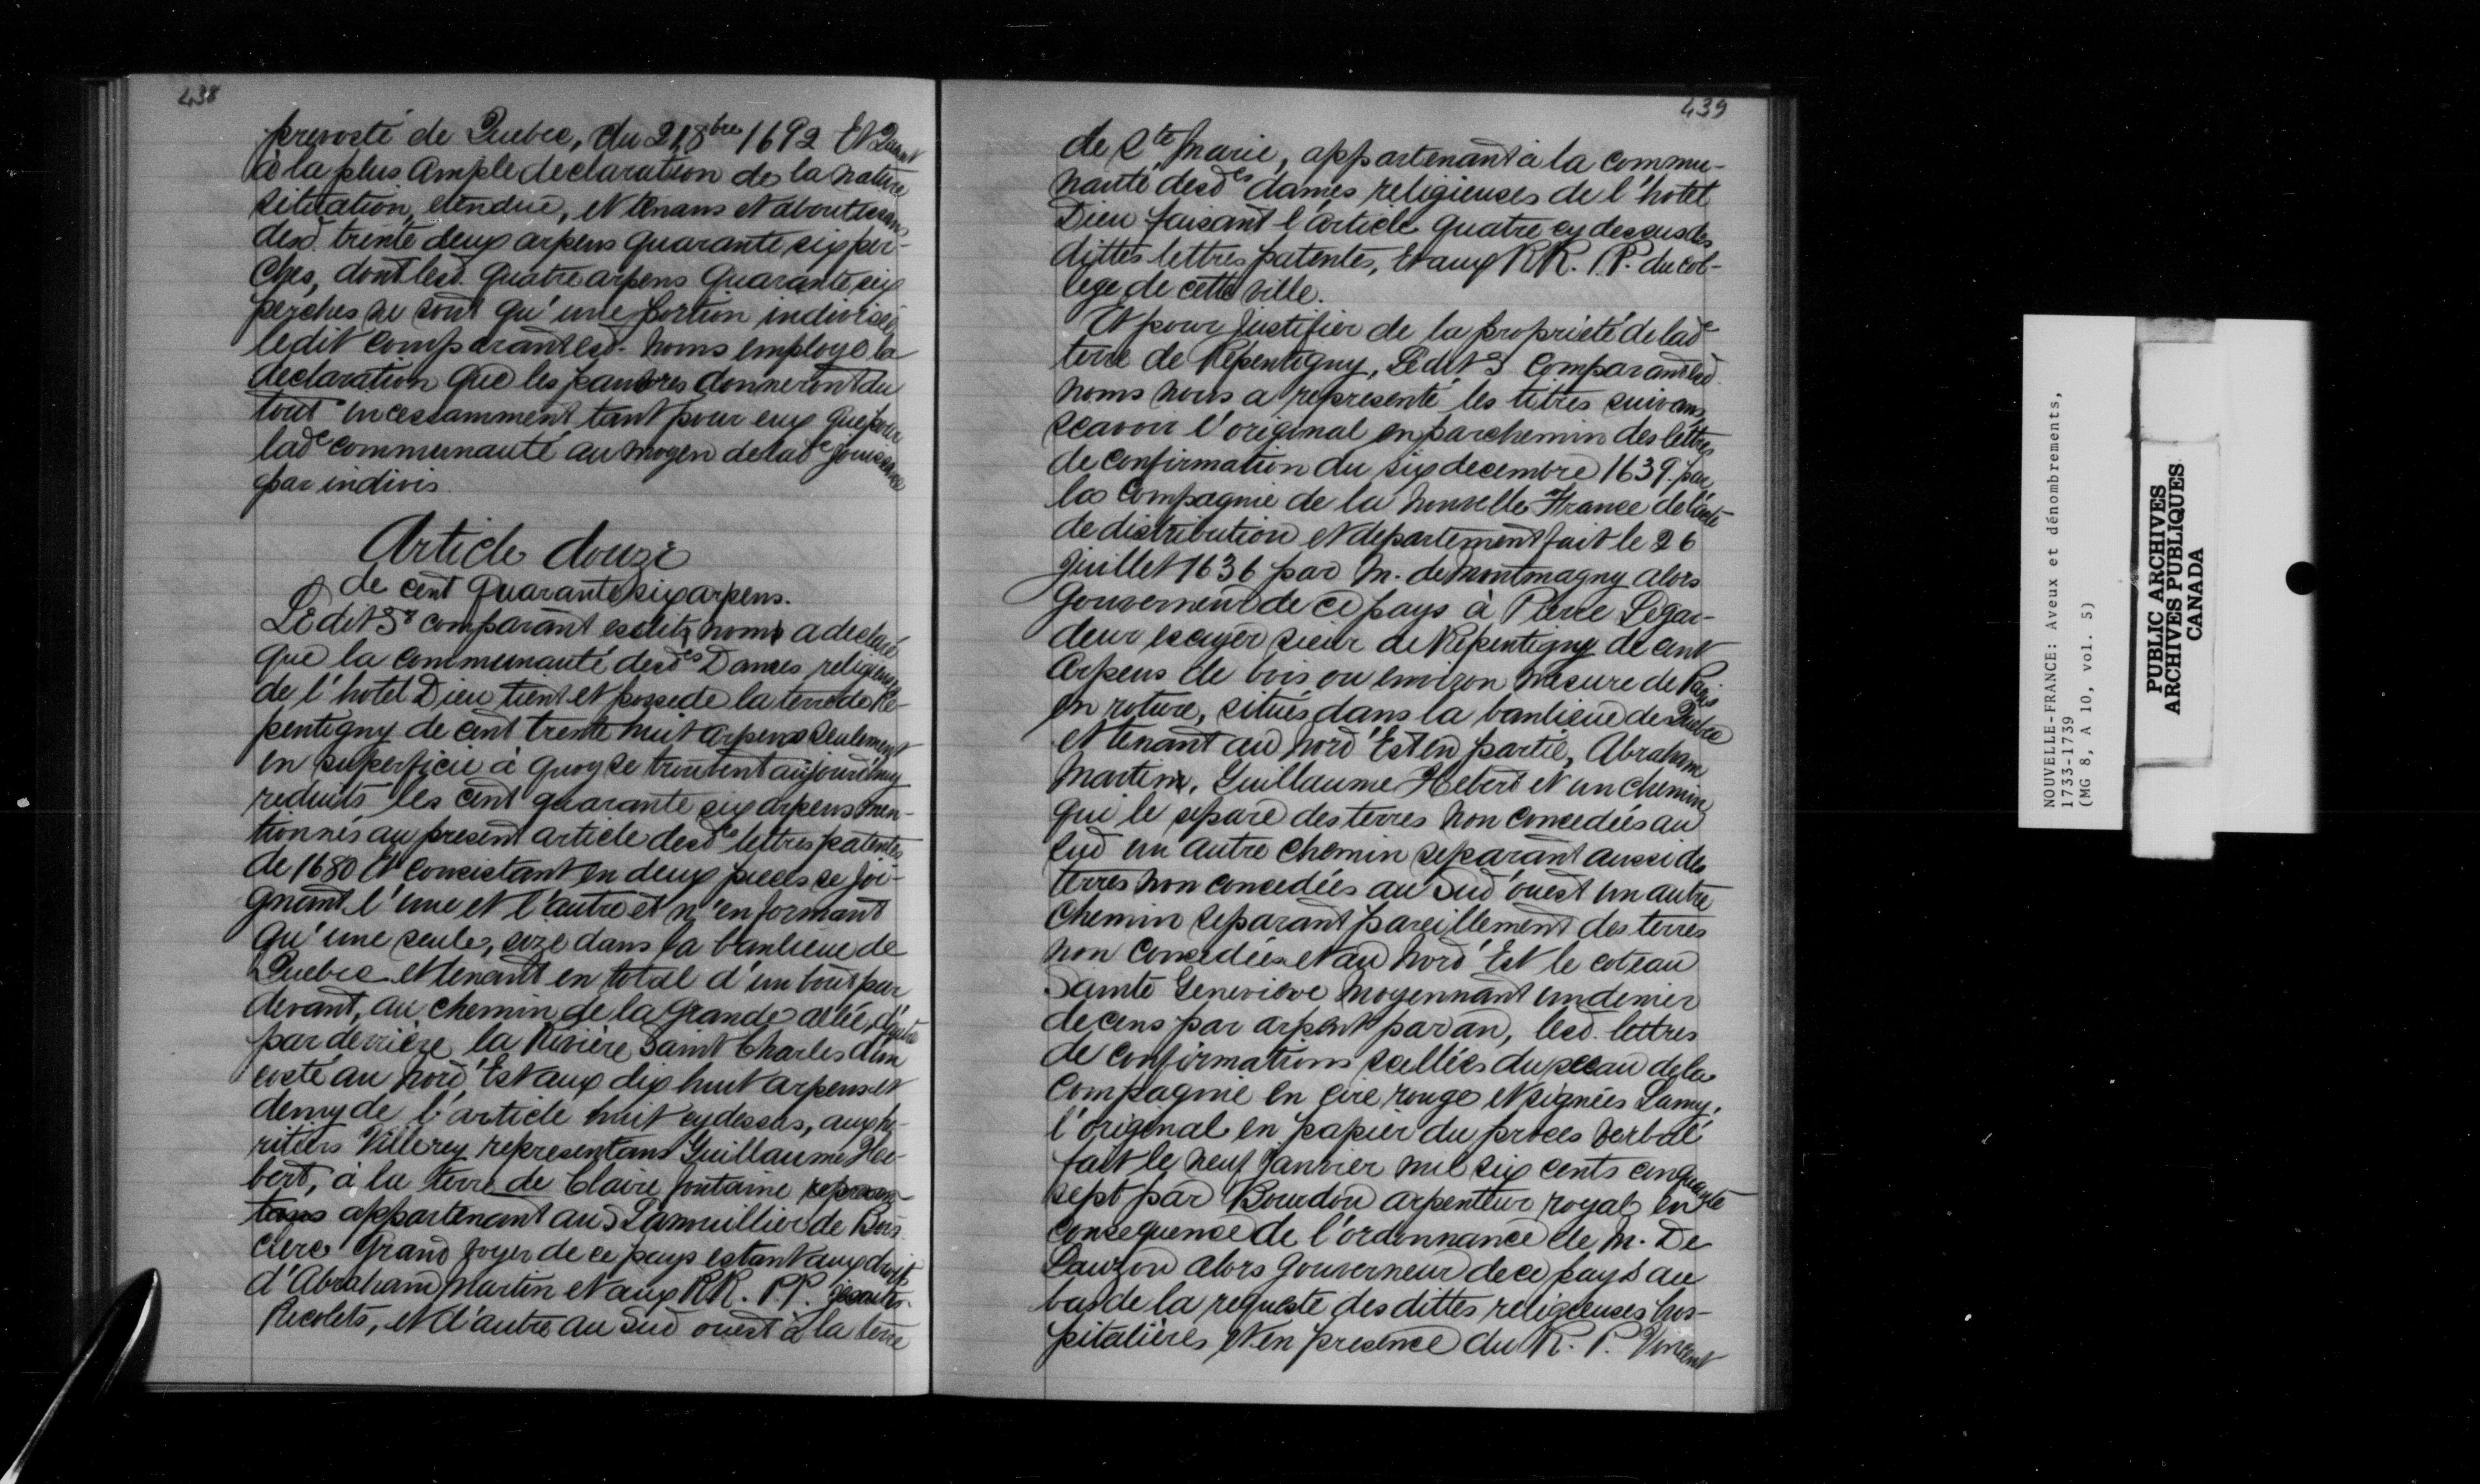 438
prevosté de Quebec, du 21 8bre 1692 Et Quant
à la plus ample declaration de la nature
situation, etendue, et tenans et aboutissans
desd. trente deux arpens quarante six per-
ches, dont lesd. quatre arpens quarante six
perches ne sont qu'une portion indivisée
ledit comparant esd. noms employe la
declaration que les pauvres donneront du
tout incessamment tant pour eux que pour
lade communauté au moyen de lade jouissance
par indivis.
Article douze
de cent quarante six arpens.
Le dit Sr comparant esdits noms a declaré
que la communauté desdes Dames religieuses
de l'hotel Dieu tient et possede la terre de Re-
pentigny de cent trente huit arpens seulement
en superficie à quoy se trouvent aujourd'huy
reduits les cent quarante six arpens men-
tionnés au present article desdes lettres patentes
de 1680 et consistant en deux pieces se joi-
gnant l'une et l'autre et n'en formant
qu'une seule, size dans la banlieue de
Quebec et tenant en total d'un bout par
devant, au chemin de la grande allée, d'autre
par derrière la Rivière Saint Charles d'un
costé au Nord Est aux dix huit arpens et
demy de l'article huit cy dessus, aux he-
ritiers Villerey representans Guillaume He-
bert, à la terre de Claire fontaine represen-
tans appartenant au S Lanuillier de Bois
clerc Grand Voyer de ce pays estant aux droits
d'Abraham Martin et aux RR. PP. jesuites
Recolets, et d'autre au Sud ouest à la terre
439
de Ste Marie, appartenant à la commu-
nauté desdes dames religieuses de l'hotel
Dieu faisant l'article quatre cy dessus des
dittes lettres patentes, et aux RR. PP. du col-
lege de cette ville.
Et pour justifier de la propriété de lade
terre de Repentigny, Le dit S comparant esd.
noms nous a representé les titres suivans,
scavoir l'original en parchemin des lettres
de confirmation du six decembre 1639. par
la Compagnie de la Nouvelle France de l'acte
de distribution et departement fait le 26
juillet 1636 par M. de Montmagny alors
Gouverneur de ce pays à Pierre Legar-
deur escuyer sieur de Repentigny de cent
arpens de bois ou environ mesure de Paris
en roture, situés dans la banlieue de Quebec
et tenant au Nord Est en partie, Abraham
Martin, Guillaume Hebert et un chemin
qui le separe des terres non concedées au
Sud un autre chemin separant aussi des
terres non concedées au Sud ouest un autre
chemin separant pareillement des terres
non concedées et au Nord Est le coteau
Sainte Genevieve moyennant un denier
de cens par arpent par an, lesd. lettres
de confirmations scellées du sceau de la
Compagnie en cire rouge et signées Lamy,
l'original en papier du proces verbal
fait le neuf janvier mil six cents cinquante
sept par Bourdon arpenteur royal en
consequence de l'ordonnance de M. De
Lauzon alors gouverneur de ce pays au
bas de la requeste des dittes religieuses hos-
pitalières et en presence du R. P. Vincent
NOUVELLE-FRANCE: Aveux et dénombrements,
1733-1739
(MG 8, A 10, vol. 5)
PUBLIC ARCHIVES
ARCHIVES PUBLIQUES
CANADA